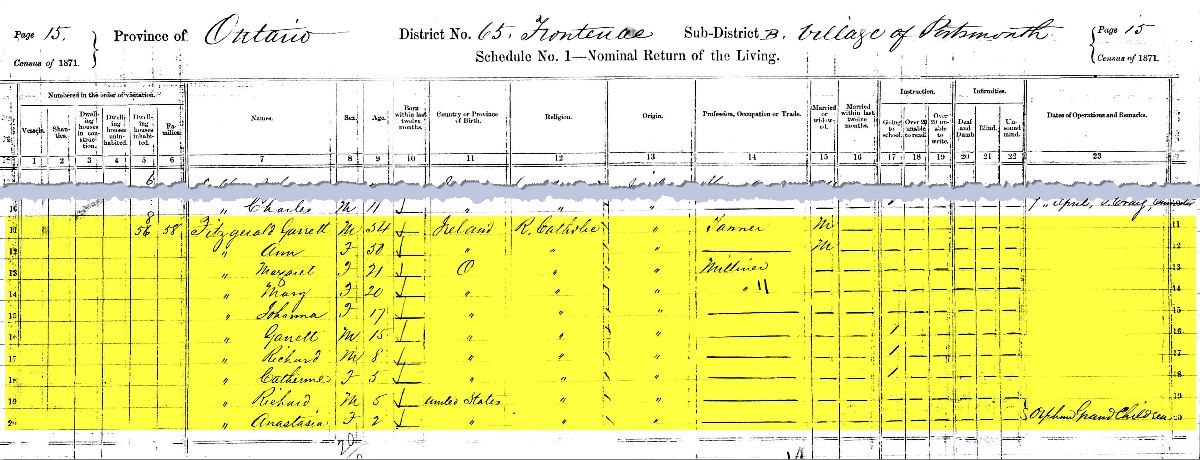 Page 15. Province of Ontario District No. 65. Frontenac Sub-District B. Village of Portsmouth Page 15
Census of 1871. Schedule No. 1—Nominal Return of the Living. Census of 1871.
Numbered in the order of visitation. Instruction. Infirmities.
Vessels. Shanties. Dwelling houses in construction. Dwelling houses uninhabited. Dwelling houses inhabited. Families. Names. Sex. Age. Born within last twelve months. Country or Province of Birth. Religion. Origin. Profession, Occupation or Trade. Married or widowed. Married within last twelve months. Going to school. Over 20 unable to read. Over 20 unable to write. Deaf and Dumb. Blind. Unsound mind. Dates of Operations and Remarks.
1 2 3 4 5 6 7 8 9 10 11 12 13 14 15 16 17 18 19 20 21 22 23
6
10 " Charles M 11 " " " April,
8
11 56 58 Fitzgerald Garrett M 54 Ireland R. Catholic " Tanner M 11
12 " Ann F 50 " " " M 12
13 " Margaret F 21 O " " Milliner 13
14 " Mary F 20 " " " " 11 14
15 " Johanna F 17 " " " 15
16 " Garrett M 15 " " " 16
17 " Richard M 8 " " " 17
18 " Catherine F 5 " " " 18
19 " Richard M 5 United States " " 19
20 " Anastasia F 2 " " " Orphan Grand Children 20